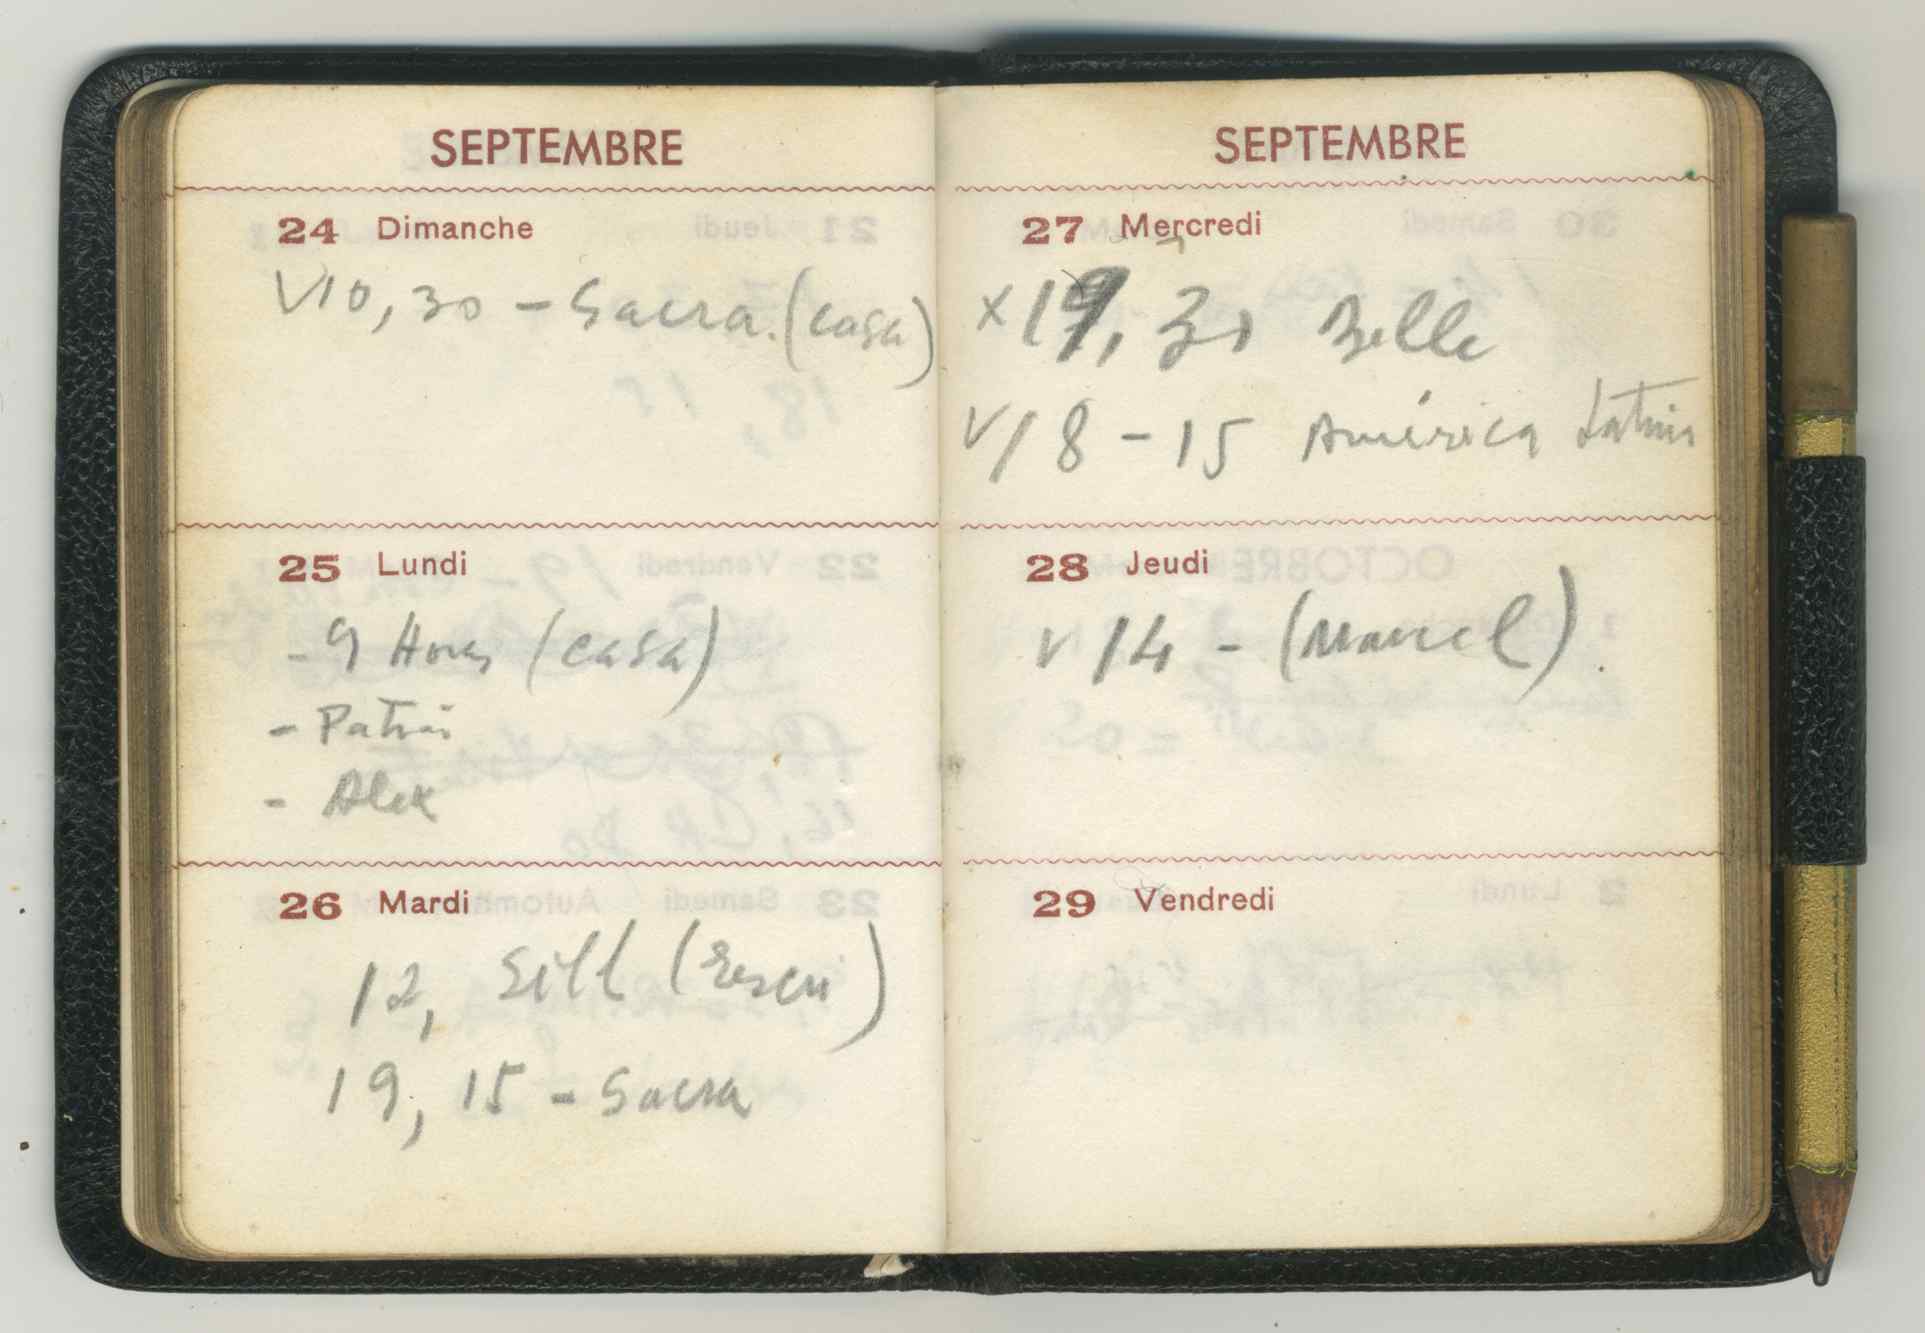 SEPTEMBRE
24 Dimanche
V10,30 - Sacra. (casa)
25 Lundi
- 9 Horas (casa)
-
- Alex
26 Mardi
12, Sill
19, 15 - Sacra
SEPTEMBRE
27 Mercredi
x 19, 30 Belle
V 18 - 15 América Latina
28 Jeudi
V 14 - (Marcel).
29 Vendredi